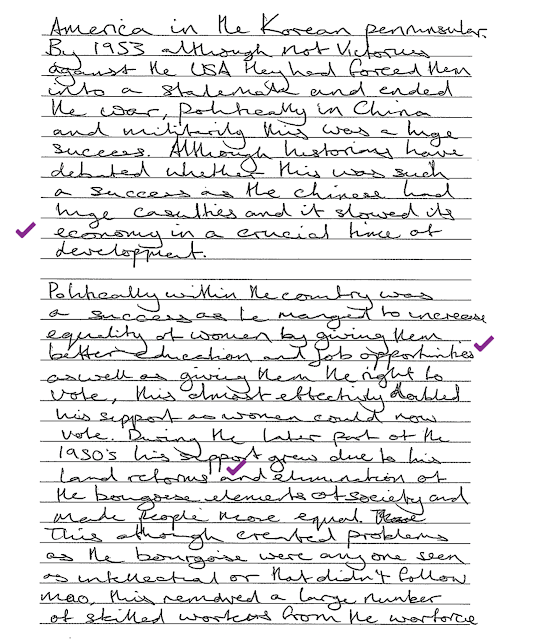 America in the Korean penninsular.
By 1953 although not Victorius
against the USA they had forced them
into a stalemate and ended
the war, politically in China
and militirily this was a huge
success. Although historians have
debated whether this was such
a success as the Chinese had
huge casulties and it slowed its
economy in a crucial time of
development.
Politically within the country was
a success as he manged to increase
equality of women by giving them
better education and job opportinities
aswell as giving them the right to
vote, this almost effectivly doubled
his support as women could now
vote. During the later part of the
1950's his support grew due to his
land reforms and elimination of
the bougoise elements of society and
made people more equal.
This although created problems
as the bourgoise were any one seen
as intellectual or that didn't follow
mao, this removed a large number
of skilled workers from the worforce